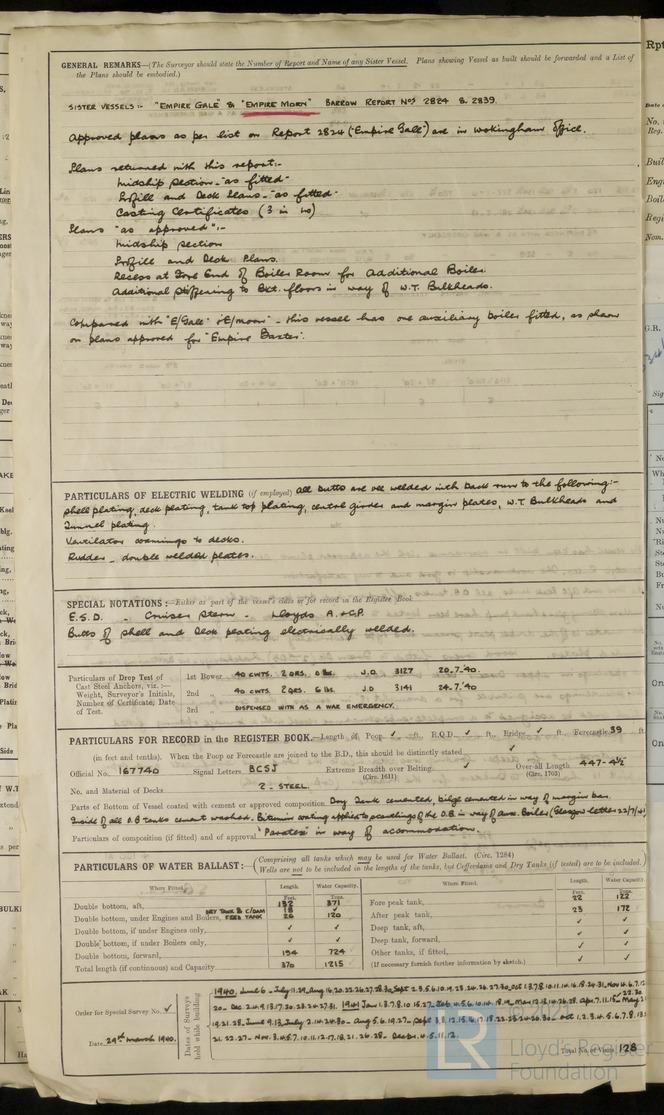 GENERAL REMARKS—(The Surveyor should state the Number of Report and Name of any Sister Vessel. Plans showing Vessel as built should be forwarded and a List of
the Plans should be embodied.)
SISTER VESSELS :- "EMPIRE GALE" & "EMPIRE MORN" BARROW REPORT Nos 2824 & 2839.
Approved plans as per list on Report 2824 ("Empire Gale") are in Wokingham Office.
Plans returned with this report:-
Midship Section - as fitted-
Profile and Deck Plans - as fitted-
Casting Certificates (3 in
Plans "as approved":-
Midship Section
Profile and Deck Plans.
Recess at Fore End of Boiler Room for Additional Boiler.
Additional Stiffening to Bkt. floors in way of W.T. Bulkheads.
Compared with "E/Gale" & "E/Morn" - this vessel has one auxiliary boiler fitted, as shown
on plans approved for "Empire Baxter".
PARTICULARS OF ELECTRIC WELDING (if employed) All butts are vee welded with back run to the following:-
Shell plating, deck plating, tank top plating, central girder and margin plates, W.T. Bulkheads and
Tunnel plating.
Ventilator coamings to decks.
Rudder - double welded plates.
SPECIAL NOTATIONS :—Either as part of the vessel's class or for record in the Register Book
E.S.D. - Cruiser Stern - Lloyds A. & C.P.
Butts of shell and deck plating electrically welded.
Particulars of Drop Test of
Cast Steel Anchors, viz. :—
Weight, Surveyor's Initials,
Number of Certificate, Date
of Test.
1st Bower 40 CWTS. 2 QRS. 0 lbs. J.D. 3127 20.7.40.
2nd „ 40 CWTS. 2 QRS. 6 lbs. J.D 3141 24.7.40.
3rd „ DISPENSED WITH AS A WAR EMERGENCY.
PARTICULARS FOR RECORD in the REGISTER BOOK.—Length of Poop ✓ ft., R.Q.D. ✓ ft., Bridge ✓ ft., Forecastle 39 ft
(in feet and tenths). When the Poop or Forecastle are joined to the B.D., this should be distinctly stated ✓
Official No. 167740 Signal Letters BCSJ Extreme Breadth over Belting ✓ (Circ. 1611) Over all Length (Circ. 1703) 447-4½
No. and Material of Decks 2 - STEEL.
Parts of Bottom of Vessel coated with cement or approved composition Dry Tank cemented, bilge cemented in way of margin bar.
Inside of all D.B tanks cement washed. Bitumin coating applied to ceilings of the D.B. in way of aux. Boiler (Glasgow letter 22/7/41)
Particulars of composition (if fitted) and of approval "Paratex" in way of accommodation.
PARTICULARS OF WATER BALLAST :— (Comprising all tanks which may be used for Water Ballast. (Circ. 1284)
Wells are not to be included in the lengths of the tanks, but Cofferdams and Dry Tanks (if tested) are to be included.)
Where Fitted. Length. Water Capacity. Where Fitted. Length. Water Capacity.
Feet. Tons. Feet. Tons.
Double bottom, aft, 132 371 Fore peak tank, 22 122
DRY TANK & C/DAM 18 ✓
Double bottom, under Engines and Boilers, FEED TANK 26 120 After peak tank, 23 172
Double bottom, if under Engines only, ✓ ✓ Deep tank, aft, ✓ ✓
Double bottom, if under Boilers only, ✓ ✓ Deep tank, forward, ✓ ✓
Double bottom, forward, 194 724 Other tanks, if fitted, ✓ ✓
Total length (if continuous) and Capacity 370 1215 (If necessary furnish further information by sketch.)
Order for Special Survey No. ✓
Date 29th March 1940.
Dates of Surveys held while building
1940. June 6 - July 11.29. Aug 16.20.22.26.27.28.30. Sept 2.3.5.6.10.19.23.24.26.27.30. Oct 1.3.7.8.10.11.14.16.18.24.31. Nov 4.6.7.12
20 - Dec 2.4.9.13.17.20.23.24.27.31. 1941 Jan 1.3.7.8.10.15.27. Feb 4.5.6.10.14.18.19. Mar 12.18.24.26.28. Apr 7.11.15. May 2
19.21.28. June 9.13. July 2.14.24.30. Aug 5.6.19.27. Sept 3.8.12.15.16.17.18.22.23.24.26.30. Oct 1.2.3.4.5.6.7.8.13
21.22.27. Nov. 3.4.5.7.10.11.12.17.18.21.26.28. Dec 2.4.5.11.12.
Total No. of Visits 128
LR
© 202
Lloyd's Register
Foundation